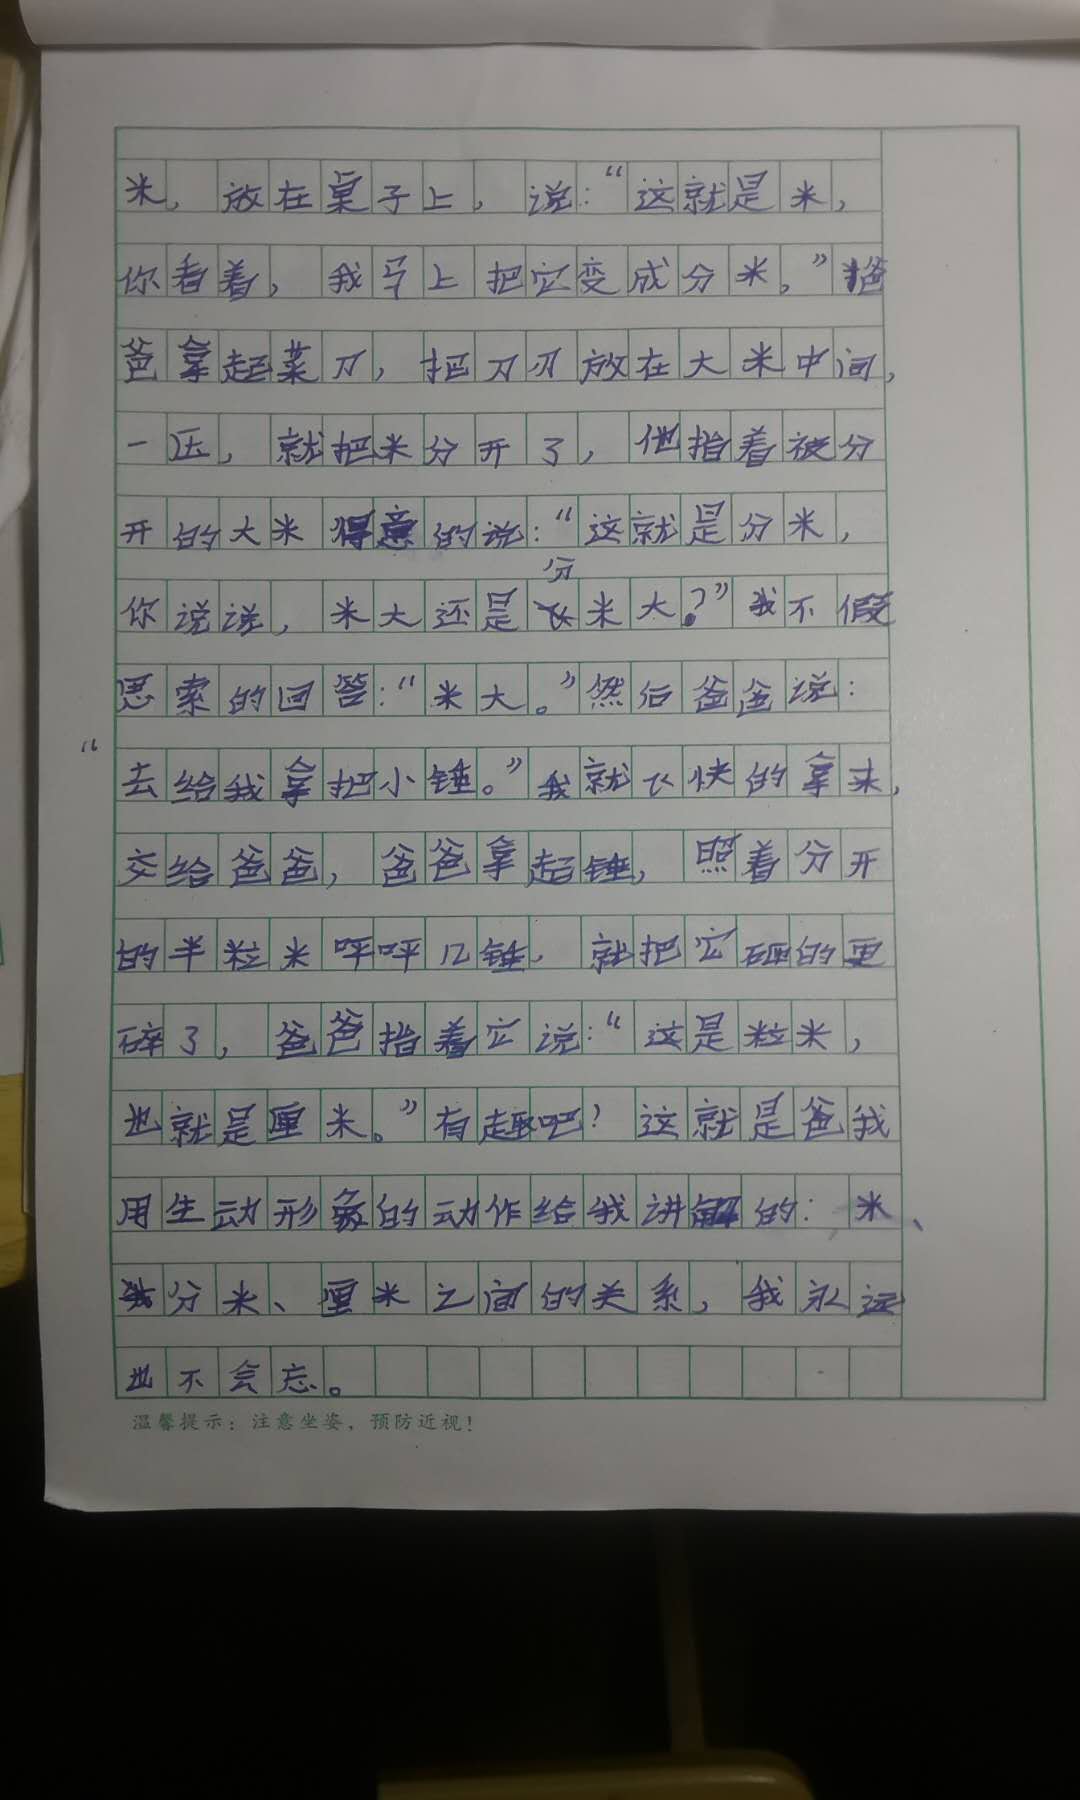 米，放在桌子上，说：“这就是米，
你看着，我马上把它变成分米。”爸
爸拿起菜刀，把刀刃放在大米中间，
一压，就把米分开了，他指着被分
开的大米得意的说：“这就是分米，
你说说，米大还是分米大？”我不假
思索的回答：“米大。”然后爸爸说：
“去给我拿把小锤。”我就飞快的拿来，
交给爸爸，爸爸拿起锤，照着分开
的半粒米呯呯几锤，就把它砸的更
碎了，爸爸指着它说：“这是粒米，
也就是厘米。”有趣吧！这就是爸我
用生动形象的动作给我讲解的：米、
分米、厘米之间的关系，我永远
也不会忘。
温馨提示：注意坐姿，预防近视！